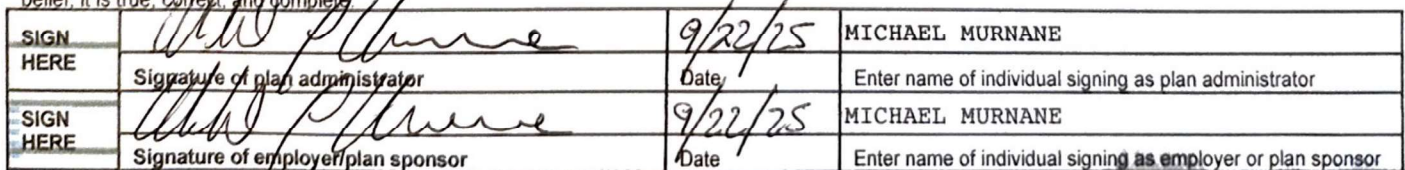 belief, it is true, correct, and complete.
SIGN HERE 9/22/25 MICHAEL MURNANE
Signature of plan administrator Date Enter name of individual signing as plan administrator
SIGN HERE 9/22/25 MICHAEL MURNANE
Signature of employer/plan sponsor Date Enter name of individual signing as employer or plan sponsor